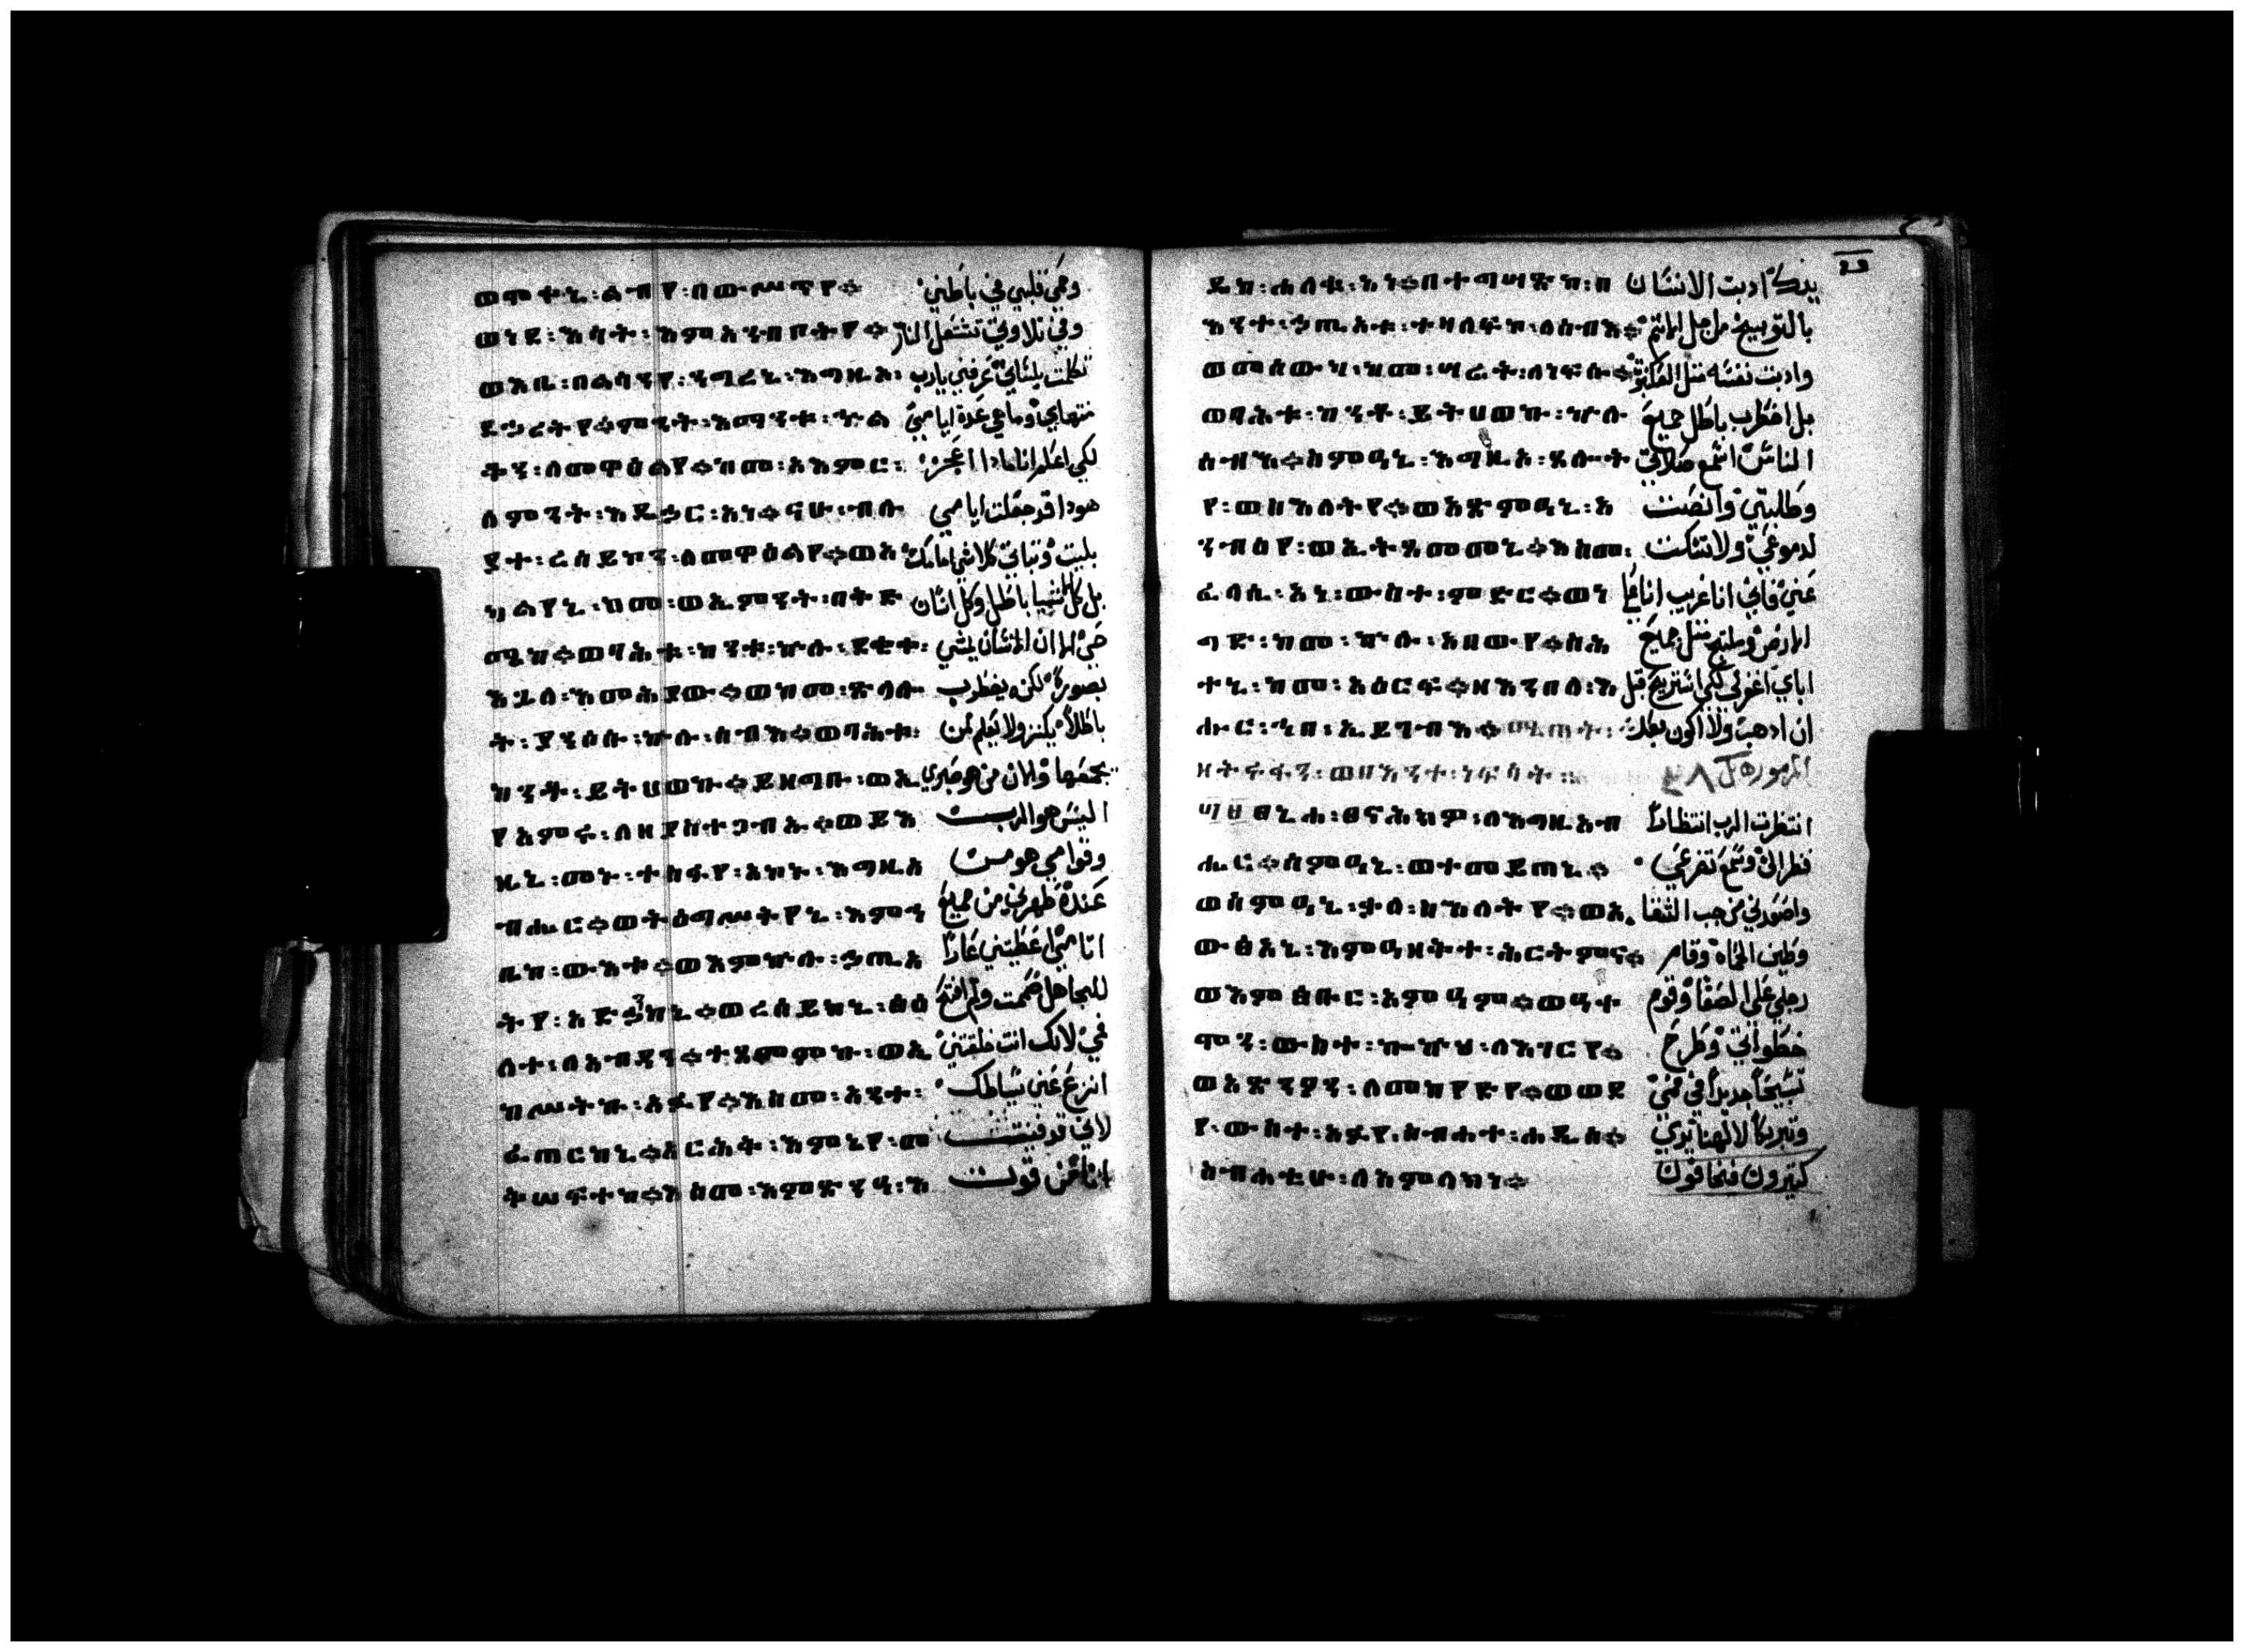 ወሞቀኒ፡ልብየ፡በውሥጥየ። وحمي قلبي في باطني
ወነደ፡እሳት፡እምአንብቦትየ። وفي تلاوتي تشتعل النار
ወእቤ፡በልሳንየ፡ንግረኒ፡እግዚኦ፡ تكلمت بلساني عرفني يارب
ደኃሪትየ።ምንት፡እማንቱ፡ኍል منتهايي وما هي عدة ايامي
ቍን፡ለመዋዕልየ።ከመ፡አእምር፡ لكي اعلم انا ماذا اعجز
ለምንት፡እዴኃር፡አነ።ናሁ፡ብሉ هوذا قد جعلت ايامي
ያተ፡ረሰይከን፡ለመዋዕልየ።ወአ بليت وثباتي كلا شي امامك
ካልየኒ፡ከመ፡ወኢምንት፡በቅድ بل كل الاشيا باطل وكل انسان
ሜከ።ወባሕቱ፡ከንቱ፡ኵሉ፡ደቂቀ፡ حي الا ان الانسان يمشي
እጓለ፡እመሕያው።ወከመ፡ጽላሎ بصورة لكنه يضطرب
ት፡የኃልፍ፡ኵሉ፡ሰብእ።ወባሕቱ፡ باطلا يكنز ولا يعلم لمن
ከንቶ፡ይትሀወኩ።ይዘግቡ፡ወኢ يجمعها والان من هو صبري
የአምሩ፡ለዘያስተጋብኡ።ወይእ اليس هو الرب
ዜኒ፡መኑ፡ተስፋየ፡አኮኑ፡እግዚአ وقوامي هو من
ብሔር።ወትዕግሥትየኒ፡እምኀ عنده طهرني من جميع
ቤከ፡ውእቱ።ወእምኵሉ፡ኃጢአ اثامي اعطيتني عارا
ትየ፡አድኃነኒ።ወረሰይከኒ፡ፅዕ للجاهل صمت ولم افتح
ለተ፡ለአብዳን።ተጸመምኩ፡ወኢ في لانك انت خلقتني
ከሠትኩ፡አፉየ።እስመ፡አንተ፡ انزع عني سياطك
ፈጠርከኒ።አርሕቅ፡እምኔየ፡መ لاني قد فنيت
ቅሠፍተከ።እስመ፡እምጽንዓ፡እ انا من قوت
ዴከ፡ሐለቁ፡አነ።በተግሣጽከ፡በ يدك ادبت الانسان
እንተ፡ኃጢአቱ፡ተዛለፍኮ፡ለሰብእ። بالتوبيخ من اجل الاثم
ወመሰውካ፡ከመ፡ሣሬት፡ለነፍሱ። واذبت نفسه مثل العنكبوت
ወባሕቱ፡ከንቶ፡ይትሀወክ፡ኵሉ፡ بل اضطرب باطل جميع
ሰብእ።ስምዓኒ፡እግዚኦ፡ጸሎት الناس اسمع صلاتي
የ፡ወስእለትየ።ወአጽምዓኒ፡አ وطلبتي وانصت
ንብዕየ፡ወኢትጸመመኒ።እስመ፡ لدموعي ولا تسكت
ፈላሲ፡አነ፡ውስተ፡ምድር።ወነ عني فاني انا غريب انا على
ግድ፡ከመ፡ኵሉ፡አበውየ።ስሐ الارض وملتجي مثل جميع
ተኒ፡ከመ፡አዕርፍ።ዘእንበለ፡እ اباي اغفر لي لكي استريح قبل
ሑር፡ኀበ፡ኢይገብእ። ان اذهب ولا اكون بعد
ጸኒሐ፡ጸናሕክዎ፡ለእግዚአብ انتظرت الرب انتظارا
ሔር።ሰምዓኒ፡ወተመይጠኒ። فنظر الي وسمع تضرعي
ወሰምዓኒ፡ቃለ፡ስእለትየ።ወአ واصعدني من جب الشقا
ውፅአኒ፡እምዓዘቅተ፡ሕርትምና። وطين الحماة وقام
ወእምፅቡር፡እምዓም።ወዓቀ رجلي على الصفا وقوم
ሞን፡ውስተ፡ኰኵሕ፡ለእገርየ። خطواتي وطرح
ወአጽንዖን፡ለመከየድየ።ወወደ تسبيحا جديدا في فمي
የ፡ውስተ፡አፉየ፡ስብሐተ፡ሐዲሰ። وتبريكا لالهنا يري
ስብሐቲሁ፡ለአምላክነ። كثيرون فيخافون